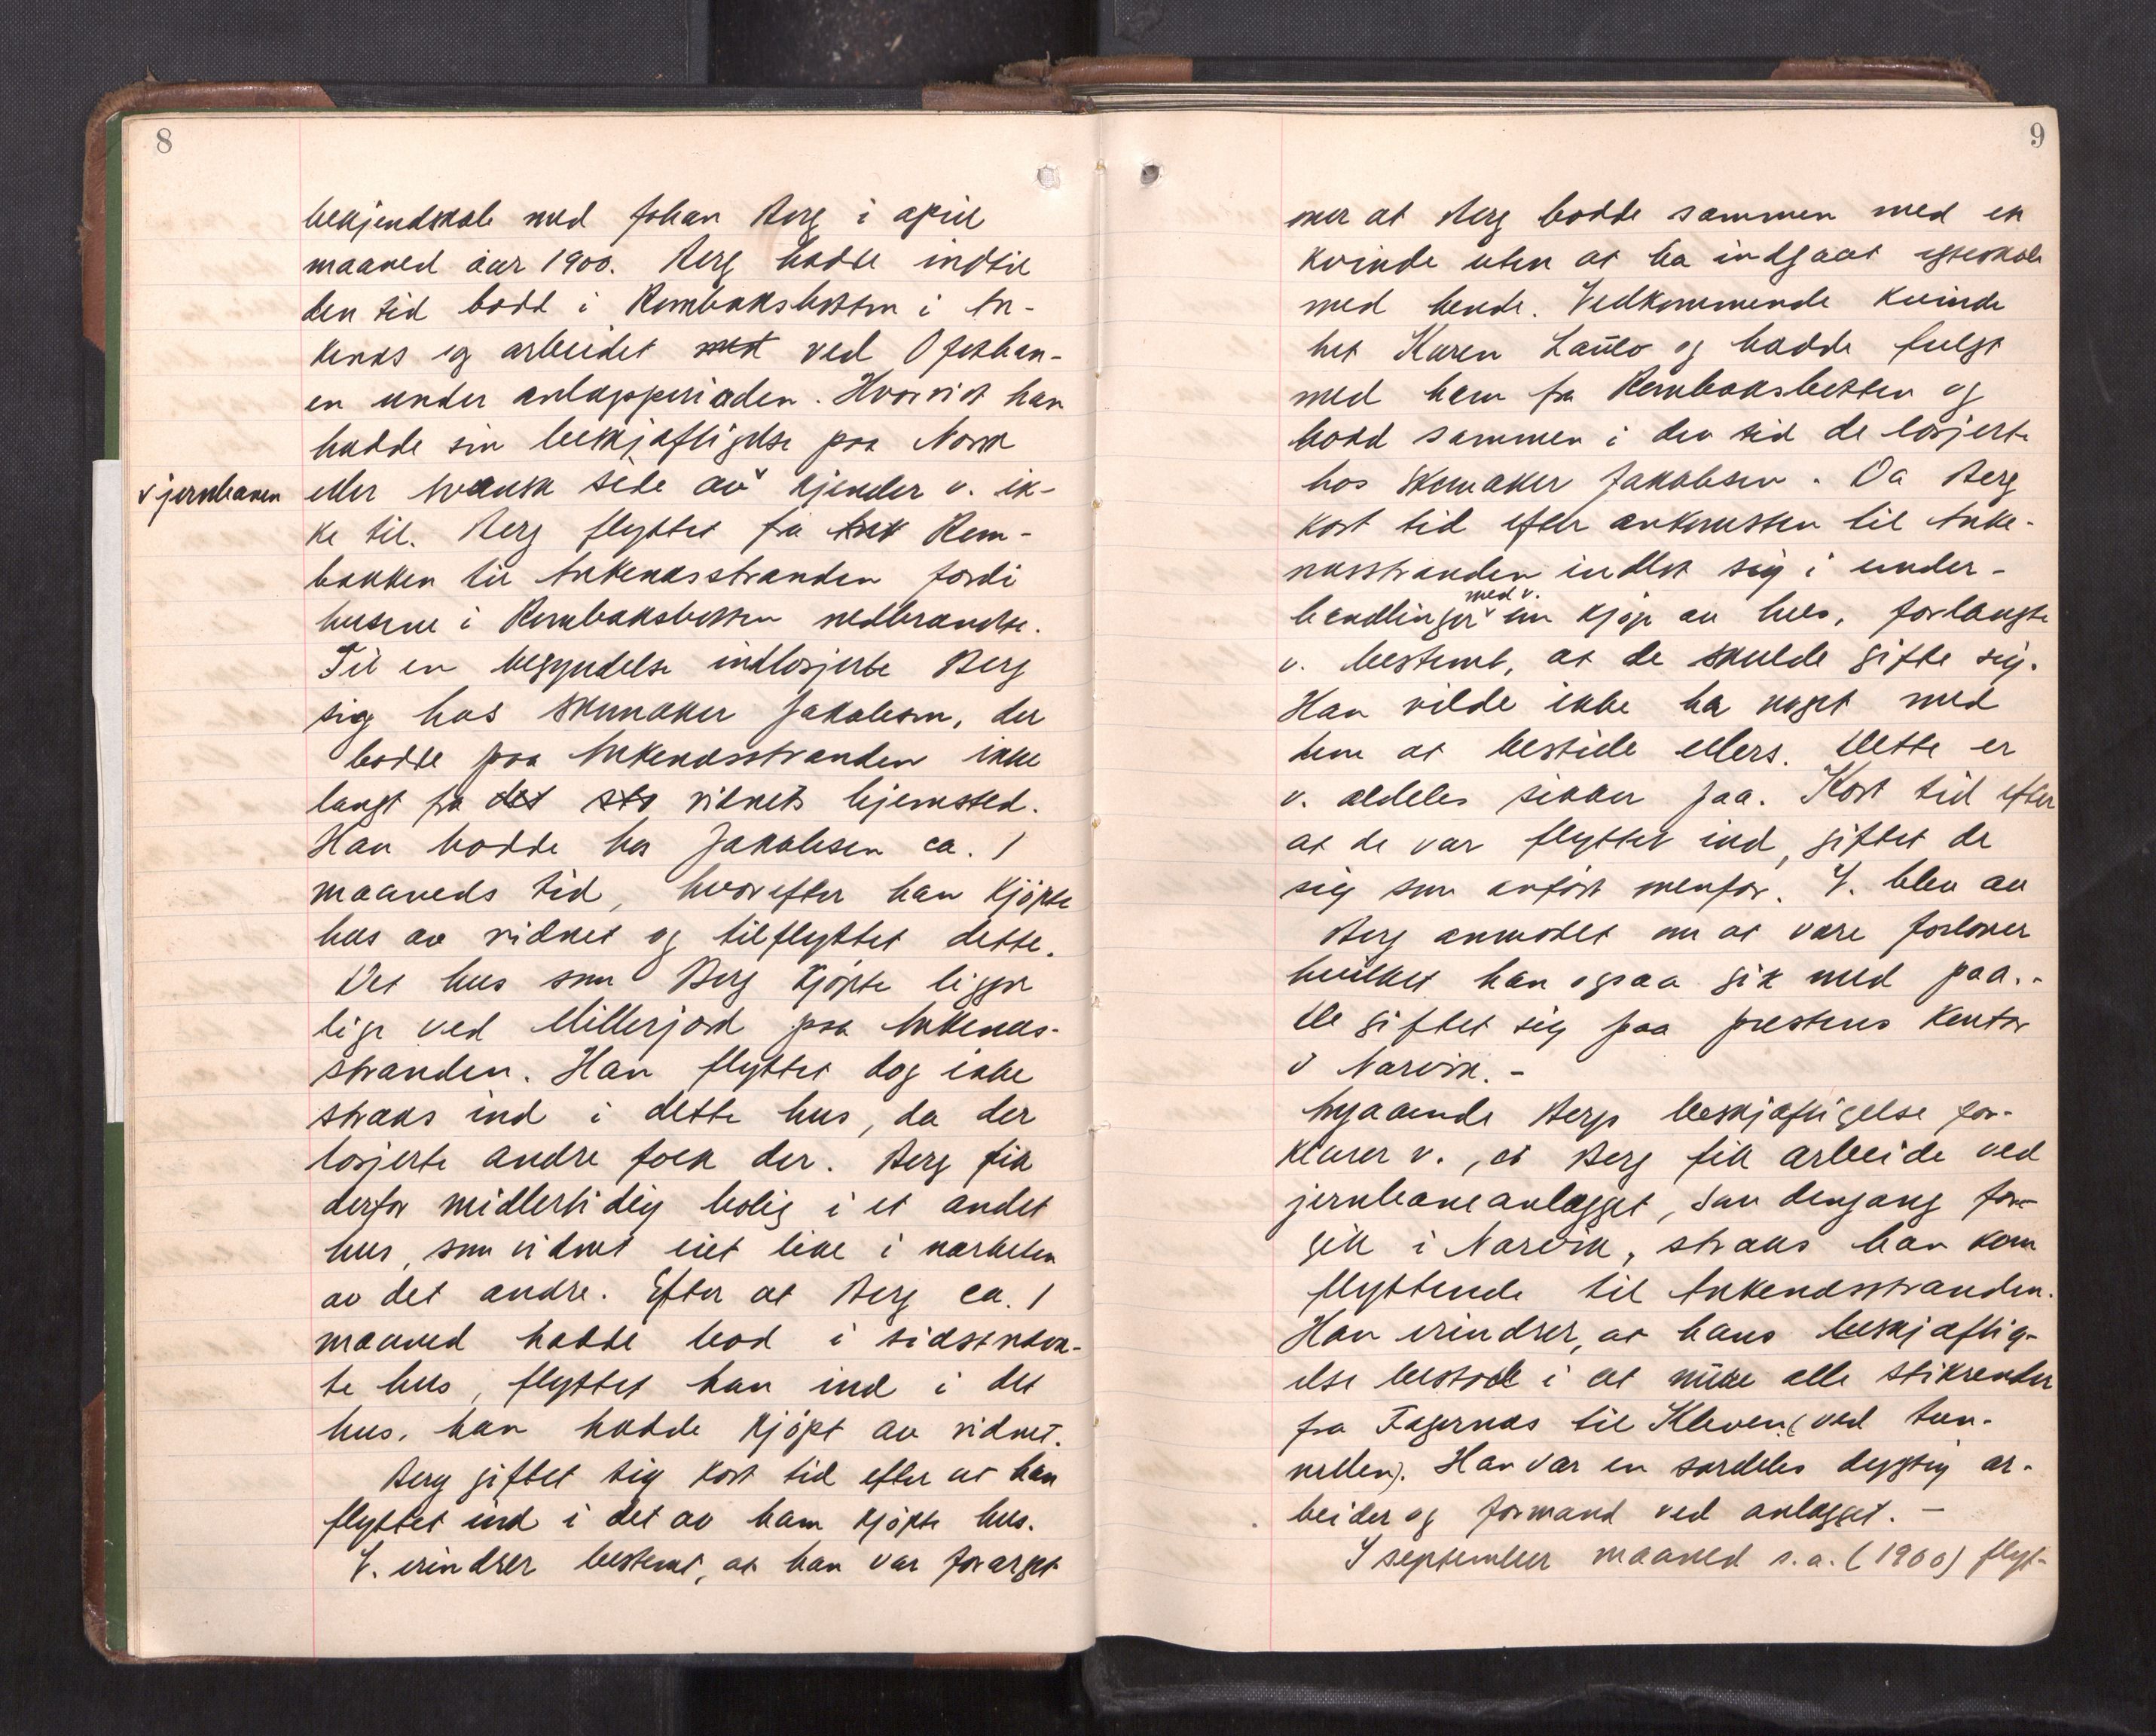 8
bekjendskab med Johan Berg i april
maaned aar 1900. Berg hadde indtil
den tid bodd i Rombaksbotten i An-
kenes og arbeidet med ved Ofotban-
en under anlægsperioden. Hvorvidt han
hadde sin beskjæftigelse paa Norsk
v jernbanen
eller svensk side av v kjender v. ik-
ke til. Berg flyttet fra Rom-
bakken til Ankenesstranden fordi
husene i Rombaksbotten nedbrændte.
Til en begyndelse indlosjerte Berg
sig hos skomaker Jakobsen, der
bodde paa Ankenesstranden ikke
langt fra det sto vidnets hjemsted.
Han bodde hos Jakobsen ca. 1
maaneds tid, hvorefter han kjöpte
hus av vidnet og tilflyttet dette.
Det hus som Berg kjöpte ligger
lige ved Millerjord paa Ankenes-
stranden. Han flyttet dog ikke
straks ind i dette hus, da der
losjerte andre folk der. Berg fik
derfor midlertidig bolig i et andet
hus, som vidnet eiet like i nærheten
av det andre. Efter at Berg ca. 1
maaned hadde bod i sidstnævn-
te hus, flyttet han ind i det
hus, han hadde kjöpt av vidnet.
Berg giftet sig kort tid efter at han
flyttet ind i det av ham kjöpte hus.
V. erindrer bestemt, at han var forarget
9
over at Berg bodde sammen med en
kvinde uten at ha indgaat egteskab
med hende. Vedkommende kvinde
het Karen Laulo og hadde fulgt
med ham fra Rombaksbotten og
bodd sammen i den tid de losjerte
hos skomaker Jakobsen. Da Berg
kort tid efter ankomsten til Anke-
nesstranden indlot sig i under-
med v.
handlinger v om kjöp av hus, forlangte
v. bestemt, at de skulde gifte sig.
Han vilde ikke ha noget med
dem at bestide ellers. Dette er
v. aldeles sikker paa. Kort tid efter
at de var flyttet ind, giftet de
sig som anfört ovenfor. V. blev av
Berg anmodet om at være forlover
hvilket han ogsaa gik med paa.-
De giftet sig paa prestens kontor
i Narvik. -
Angaaende Bergs beskjæftigelse for-
klarer v., at Berg fik arbeide ved
jernbaneanlægget, som dengang fore-
gik i Narvik, straks han kom
flyttende til Ankenesstranden.
Han erindrer, at hans beskjæftig-
else bestod i at mure alle stikrender
fra Fagernes til Kleven (ved tun-
nellen). Han var en særdeles dygtig ar-
beider og formand ved anlægget. -
I september maaned s.a. (1900) flyt-